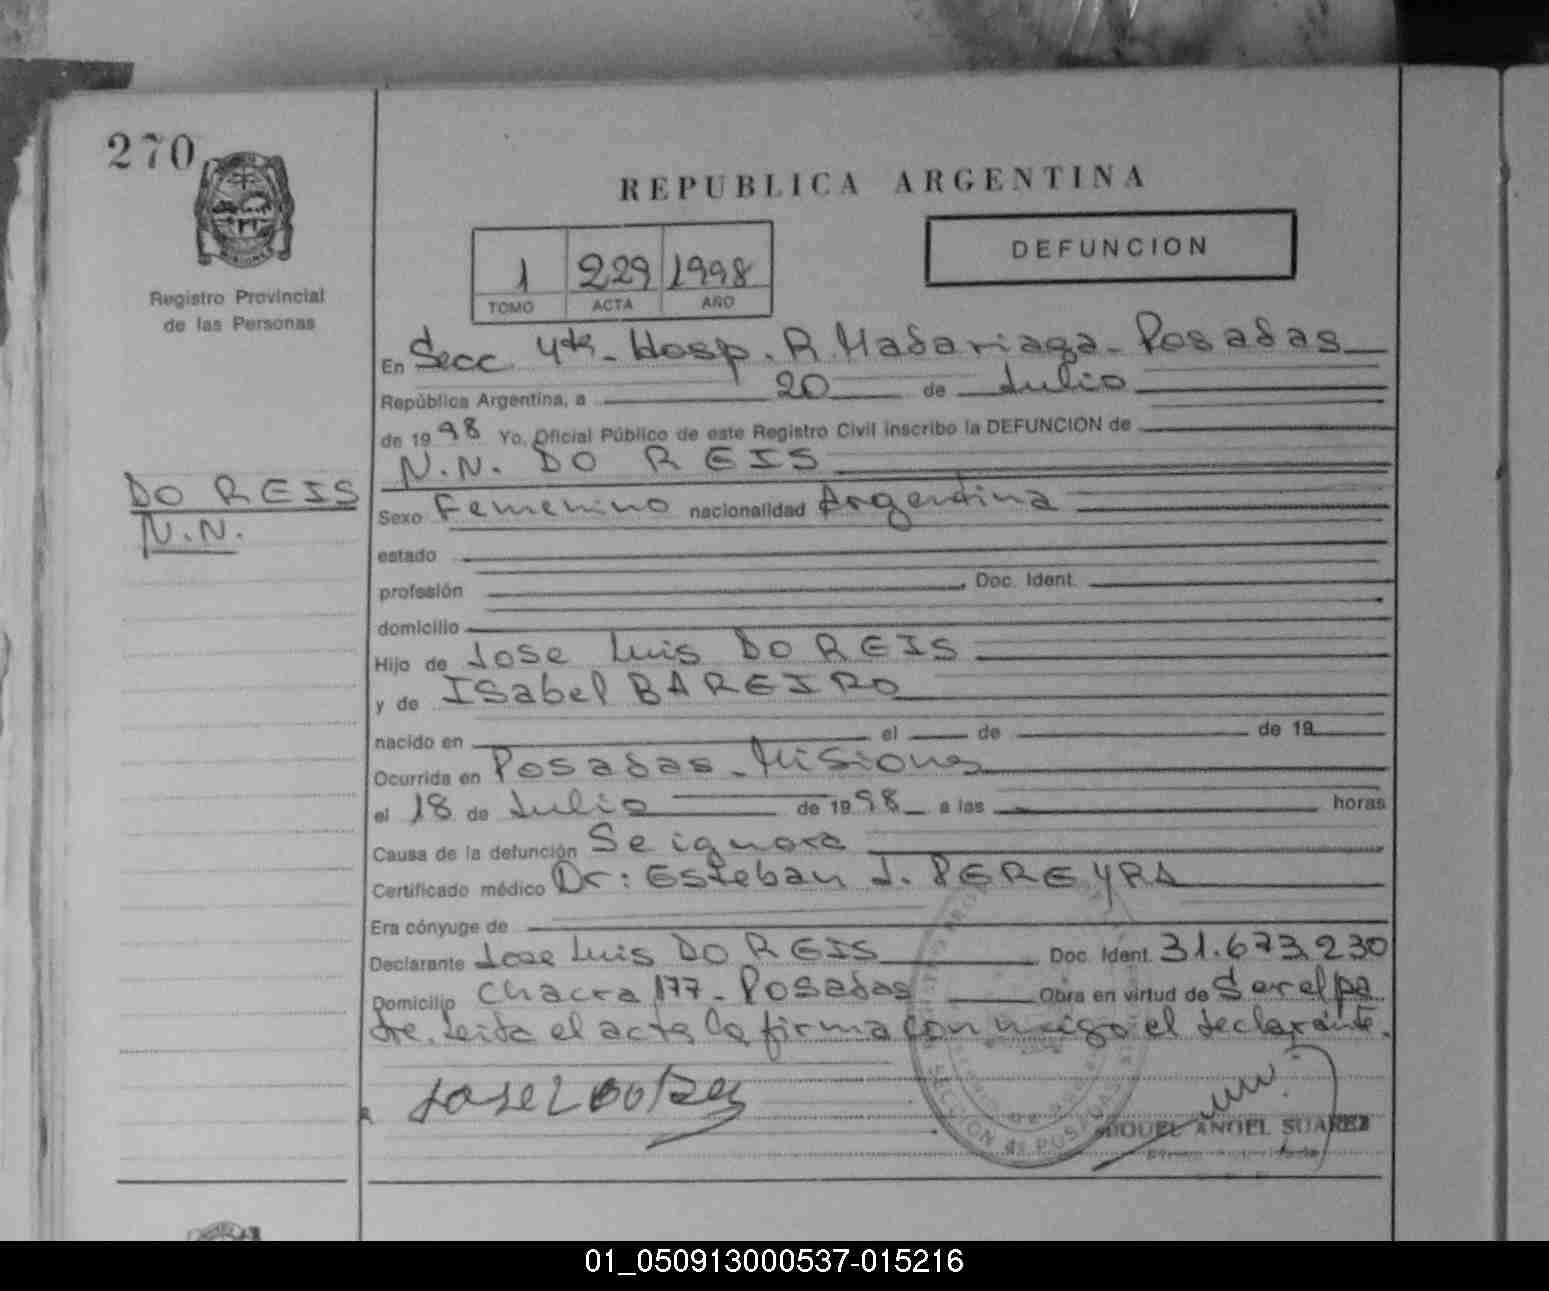 270
Registro Provincial
de las Personas
REPUBLICA ARGENTINA
1 229 1998
TOMO ACTA AÑO
DEFUNCION
En Secc. 4ta - Hosp. R. Madariaga - Posadas
República Argentina, a 20 de Julio
de 1998 Yo, Oficial Público de este Registro Civil inscribo la DEFUNCION de
N.N. DO REIS
DO REIS
N.N.
Sexo Femenino nacionalidad Argentina
estado
profesión Doc. Ident.
domicilio
Hijo de Jose Luis DO REIS
y de Isabel BAREIRO
nacido en el de de 19
Ocurrida en Posadas - Misiones
el 18 de Julio de 1998 a las horas
Causa de la defunción Se ignora
Certificado médico Dr: Esteban J. PEREYRA
Era cónyuge de
Declarante Jose Luis DO REIS Doc. Ident. 31.673.230
Domicilio Chacra 177 - Posadas Obra en virtud de Ser el pa
dre. Leida el acta la firma con migo el declarante.
MIGUEL ANGEL SUAREZ
SECCION 4a POSADAS
01_050913000537-015216